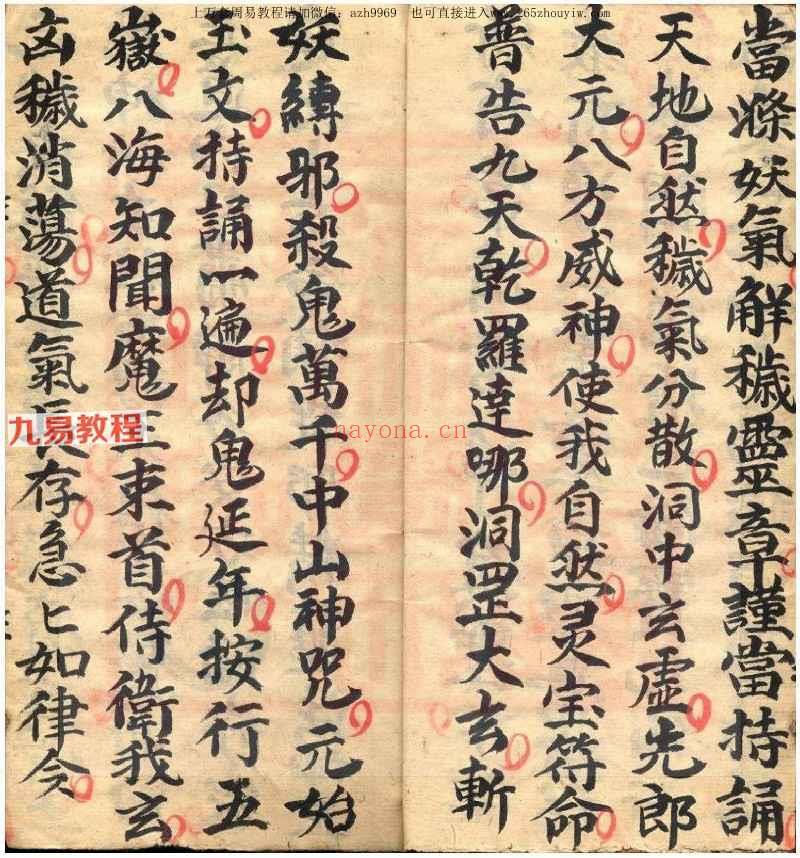 上万套周易教程请加微信：azh9969 也可直接进入www.265zhouyiw.com
當滌妖氣解穢靈章謹當持誦
天地自然穢氣分散洞中玄虛先郎
大元八方威神使我自然灵宝符命
普告九天乾羅達哪洞罡大玄斬
妖縛邪殺鬼萬千中山神咒元始
玉文持誦一遍却鬼延年按行五
嶽八海知聞魔王束首侍衛我玄
凶穢消蕩道氣存急匕如律令
九易教程
nayona.cn